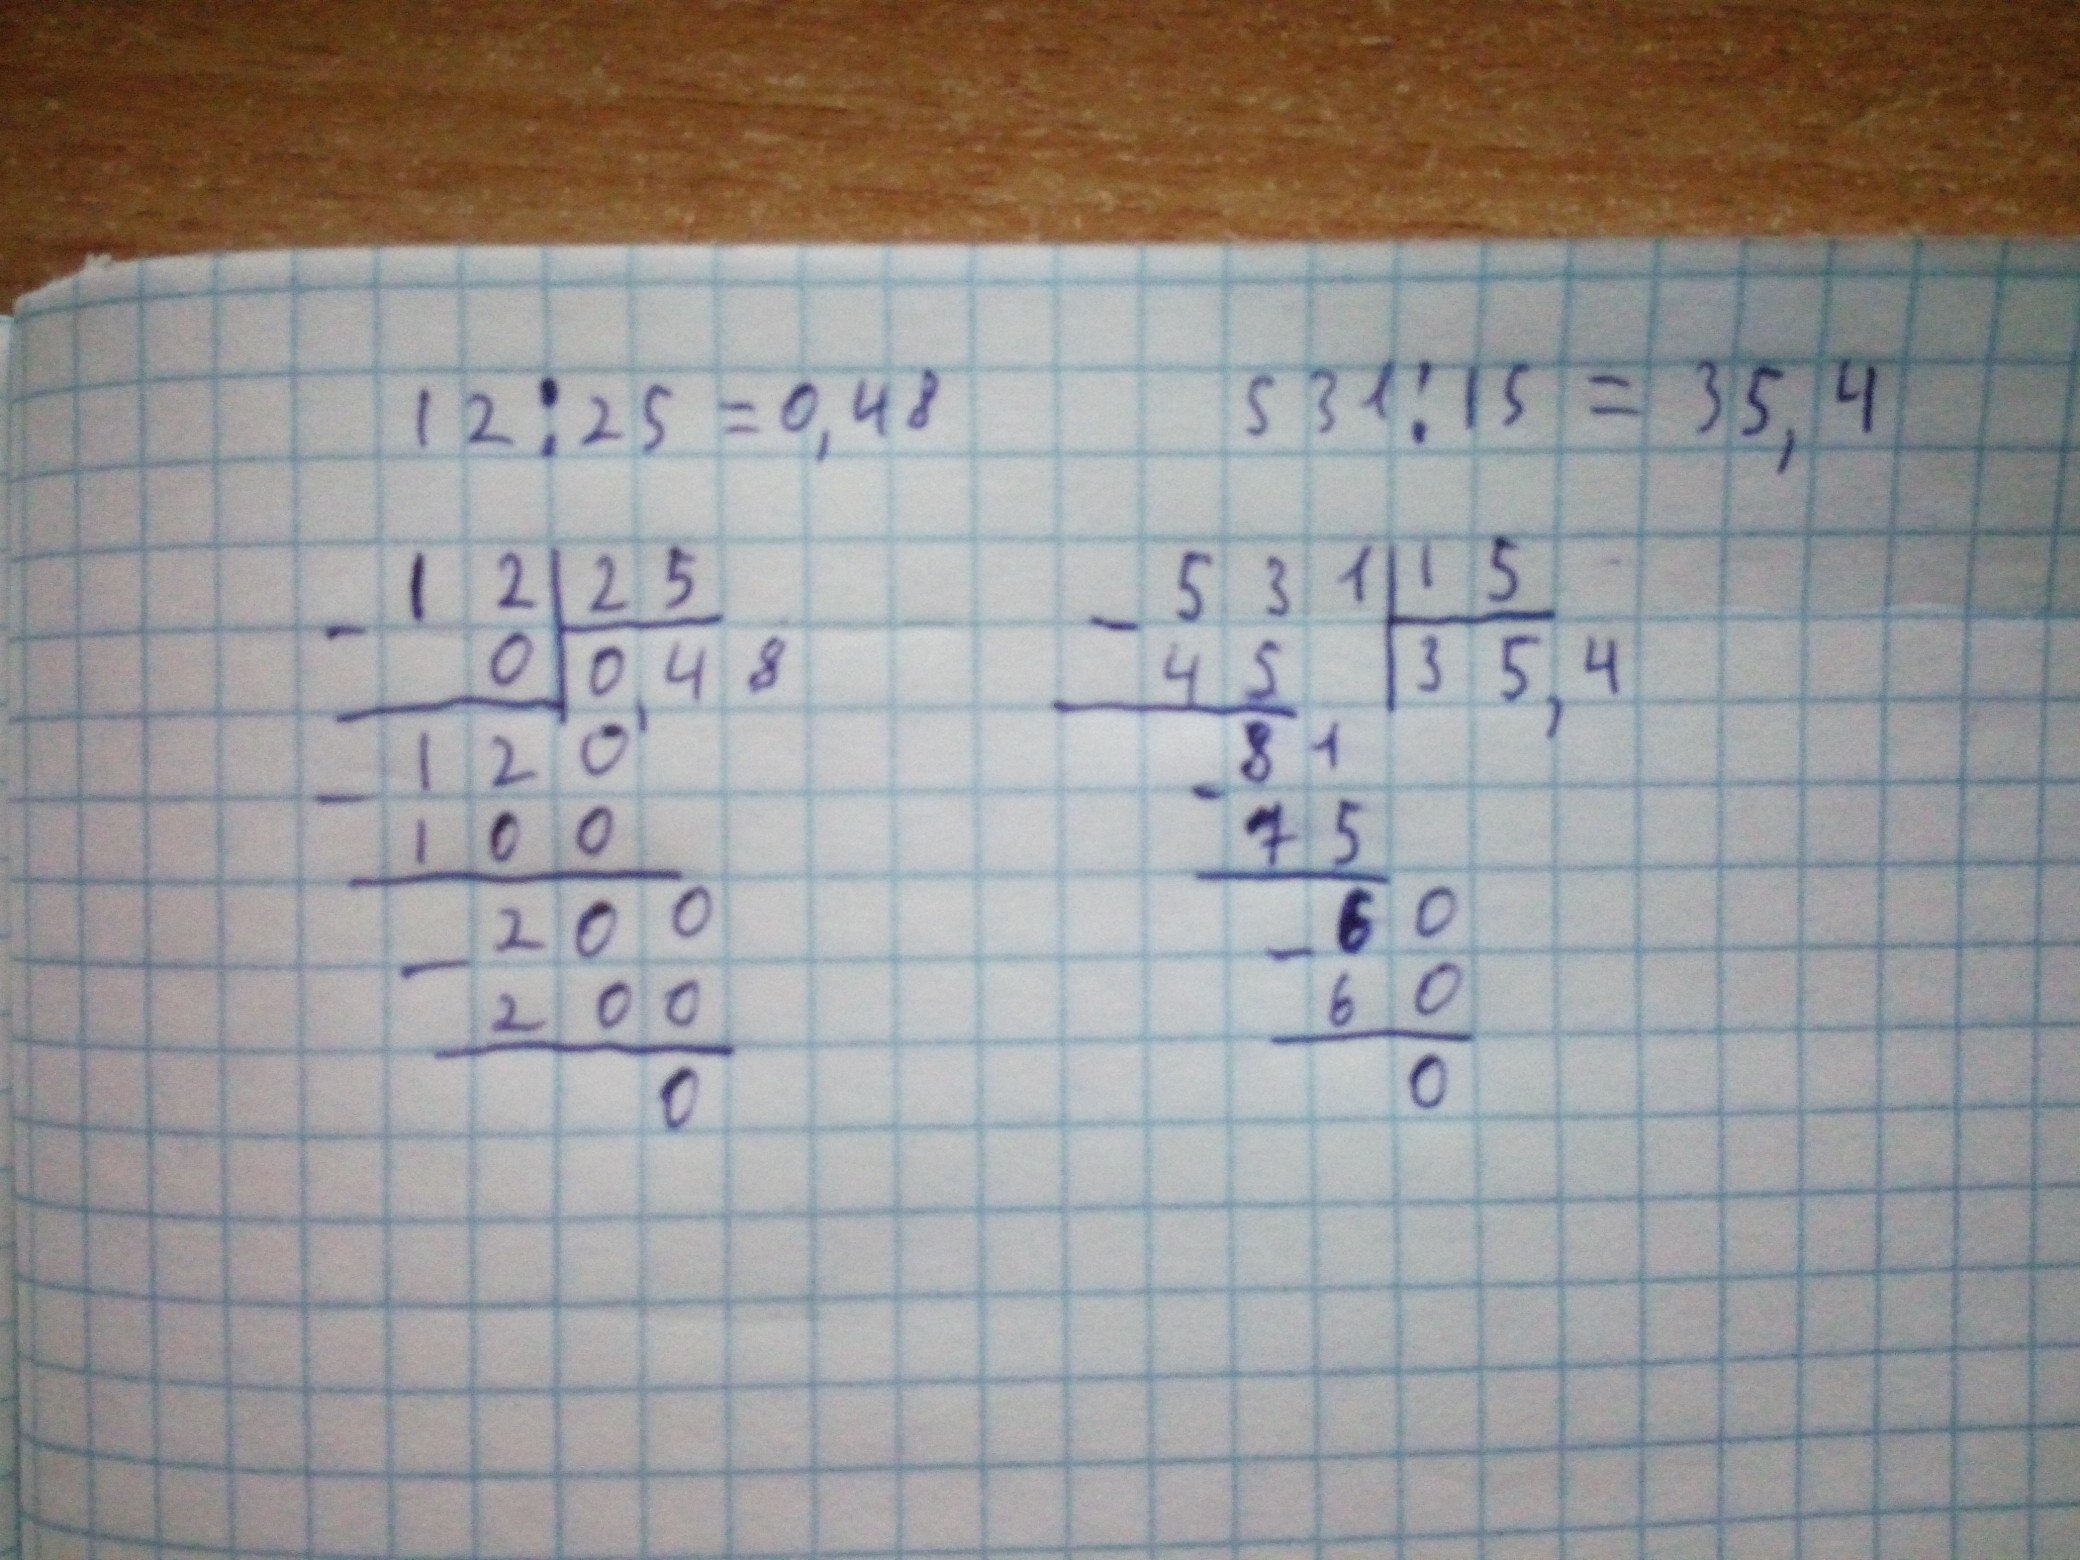 12:25=0,48
531:15=35,4
- 12 | 25
0 | 0,48
- 120
100
- 200
200
0
- 531 | 15
45 | 35,4
81
- 75
- 60
60
0